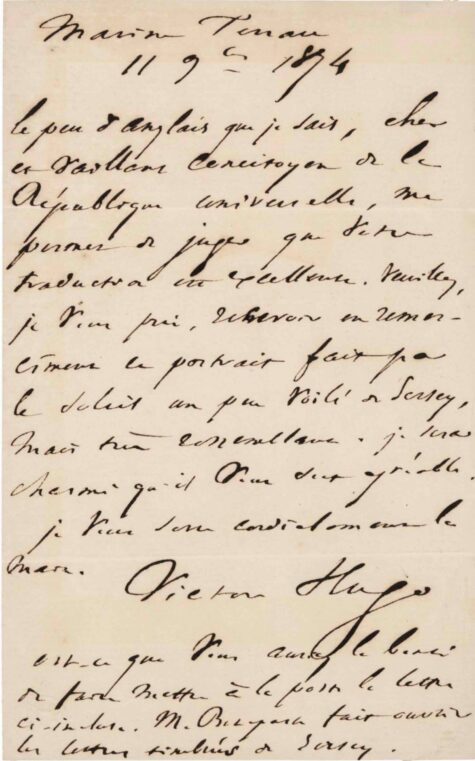 Marine Terrace
11 9bre 1854
le peu d'anglais que je sais, cher
et vaillant concitoyen de la
République universelle, me
permet de juger que votre
traduction est excellente. Veuillez,
je vous prie, recevoir en remer-
cîment ce portrait fait par
le soleil un peu voilé de Jersey,
mais très ressemblant. je serai
charmé qu'il vous soit agréable.
je vous serre cordialement la
main.
Victor Hugo
est-ce que vous auriez la bonté
de faire mettre à la poste la lettre
ci-incluse. M. Bonaparte fait ouvrir
les lettres timbrées de Jersey.